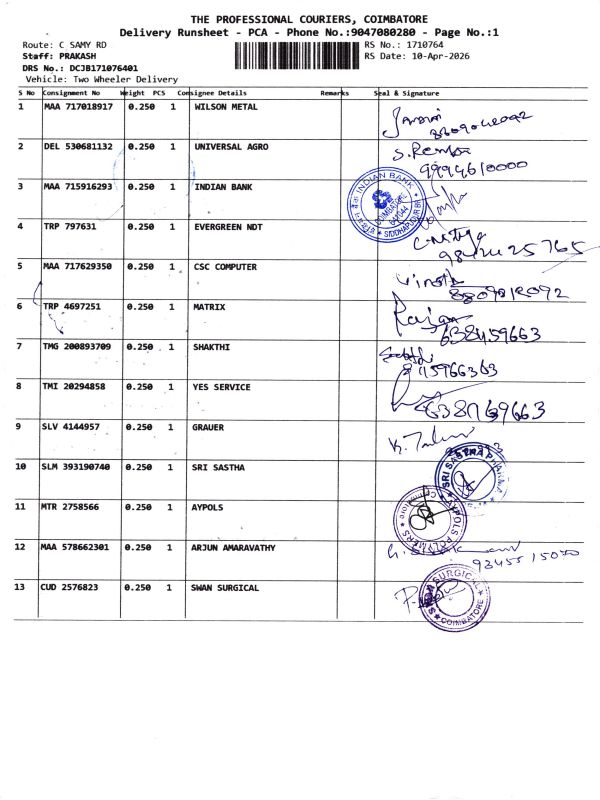 THE PROFESSIONAL COURIERS, COIMBATORE
Delivery Runsheet - PCA - Phone No.:9047080280 - Page No.:1
Route: C SAMY RD
RS No.: 1710764
Staff: PRAKASH
RS Date: 10-Apr-2026
DRS No.: DCJB171076401
Vehicle: Two Wheeler Delivery
S No Consignment No Weight PCS Consignee Details Remarks Seal & Signature
1 MAA 717018917 0.250 1 WILSON METAL
2 DEL 530681132 0.250 1 UNIVERSAL AGRO
9994610000
3 MAA 715916293 0.250 1 INDIAN BANK
INDIAN BANK
COIMBATORE
641044
SIDDHAPUDUR BR
4 TRP 797631 0.250 1 EVERGREEN NDT
9842425765
5 MAA 717629350 0.250 1 CSC COMPUTER
6 TRP 4697251 0.250 1 MATRIX
7 TMG 200893709 0.250 1 SHAKTHI
8 TMI 20294858 0.250 1 YES SERVICE
9 SLV 4144957 0.250 1 GRAUER
10 SLM 393190740 0.250 1 SRI SASTHA
11 MTR 2758566 0.250 1 AYPOLS
AYPOLS POLYMERS
12 MAA 578662301 0.250 1 ARJUN AMARAVATHY
13 CUD 2576823 0.250 1 SWAN SURGICAL
SWAN SURGICAL
COIMBATORE